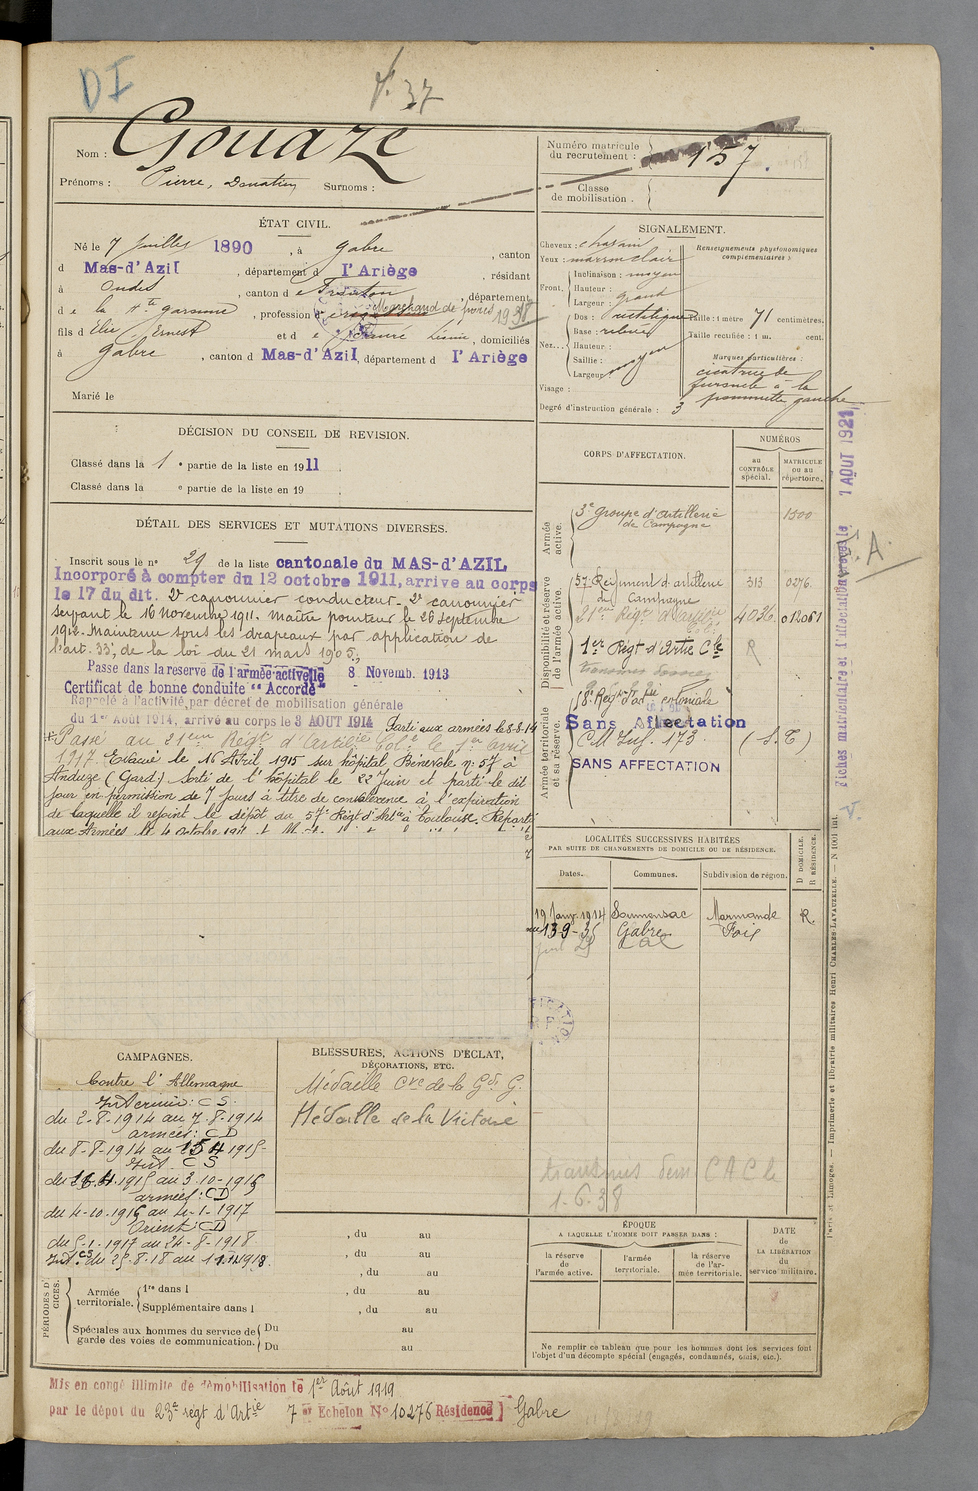 DI
37
Nom : Gouazé
Prénoms : Pierre, Donatien Surnoms :
Numéro matricule du recrutement : 157.
Classe de mobilisation .
ÉTAT CIVIL.
Né le 7 Juillet 1890 , à Gabre , canton
d Mas-d'Azil , département d l'Ariège , résidant
à Ondes , canton d e Fronton , département
d e la Hte garonne , profession d Marchand de porcs 1938
fils d'Elie Ernest et d e , domiciliés
à Gabre , canton d Mas-d'Azil , département d l'Ariège
Marié le
SIGNALEMENT.
Cheveux : chatain
Yeux : marron clair
Renseignements physionomiques complémentaires :
Front. Inclinaison : moyen
Hauteur :
Largeur : grand
Nez. Dos : rectiligne
Base : relevée
Hauteur :
Saillie :
Largeur : moyen
Taille : 1 mètre 71 centimètres.
Taille rectifiée : 1 m. cent.
Marques particulières :
cicatrice de
furoncle à la
pommette gauche
Visage :
Degré d'instruction générale : 3
DÉCISION DU CONSEIL DE REVISION.
Classé dans la 1 e partie de la liste en 1911
Classé dans la e partie de la liste en 19
DÉTAIL DES SERVICES ET MUTATIONS DIVERSES.
Inscrit sous le n° 29 de la liste cantonale du MAS-d'AZIL
Incorporé à compter du 12 octobre 1911, arrive au corps
le 17 du dit. 2e canonnier conducteur - 2e canonnier
servant le 16 Novembre 1911. Maître pointeur le 26 Septembre
1912. Maintenu sous les drapeaux par application de
l'art. 33, de la loi du 21 mars 1905.
Passé dans la réserve de l'armée active le 8 Novemb. 1913
Certificat de bonne conduite "Accordé"
Rappelé à l'activité par décret de mobilisation générale
du 1er Août 1914, arrivé au corps le 3 AOUT 1914 Parti aux armées le 8-8-14
Passé au 21eme Régt d'Artillerie Colle le 1er Avril
1917. Evacué le 16 Avril 1915 sur hôpital Bénévole n: 57 à
Anduze (Gard). Sorti de l'hôpital le 22 Juin et parti le dit
jour en permission de 7 jours à titre de convalescence à l'expiration
de laquelle il rejoint le dépôt du 57e Régt d'Artie à Toulouse. Reparti
aux Armées le 4 Octobre
CORPS D'AFFECTATION.
NUMÉROS
au CONTRÔLE spécial.
MATRICULE ou au répertoire.
Armée active.
3e Groupe d'artillerie de Campagne 1500
Disponibilité et réserve de l'armée active.
57 Régiment d'artillerie de Campagne 313 0276
21eme Régt d'artillerie 4036 012061
1er Régt d'Artie Cle R
Armée territoriale et sa réserve.
Sans Affectation
C.M. Inf. 173 (S.T)
SANS AFFECTATION
Fiches matriculaire et d'affectation 1 AOUT 1921
A.
V.
LOCALITÉS SUCCESSIVES HABITÉES
PAR SUITE DE CHANGEMENTS DE DOMICILE OU DE RÉSIDENCE.
Dates. Communes. Subdivision de région.
D DOMICILE. R RÉSIDENCE.
19 Janv. 1914 Soumensac Marmande R.
13-9-35 Gabre Foix
CAMPAGNES.
Contre l'Allemagne
Intérieur : CS.
du 2-8-1914 au 7-8-1914
armées : CD
du 8-8-1914 au 15 4 1915
Int. CS
du 16.4.1915 au 3-10-1915
armées : CD
du 4-10-1915 au 4-1-1917
Orient CD
du 5-1-1917 au 24-8-1918
Int. CS du 25-8-18 au 11.11.1918.
BLESSURES, ACTIONS D'ÉCLAT,
DÉCORATIONS, ETC.
Médaille Cve de la Gde G.
Médaille de la Victoire
transmis CAC le
1-6-38
, du au
, du au
, du au
PÉRIODES D'EXERCICES.
Armée territoriale. 1re dans l , du au
Supplémentaire dans l , du au
Spéciales aux hommes du service de garde des voies de communication. Du au
Du au
ÉPOQUE
A LAQUELLE L'HOMME DOIT PASSER DANS :
la réserve de l'armée active.
l'armée territoriale.
la réserve de l'armée territoriale.
DATE de LA LIBÉRATION du service militaire.
Ne remplir ce tableau que pour les hommes dont les services font l'objet d'un décompte spécial (engagés, condamnés, omis, etc.).
Paris et Limoges. — Imprimerie et librairie militaires Henri CHARLES-LAVAUZELLE. — N 1001 int.
Mis en congé illimité de démobilisation le 1er Août 1919
par le dépôt du 23e regt d'Artie 7e Echelon No 10276 Résidence Gabre